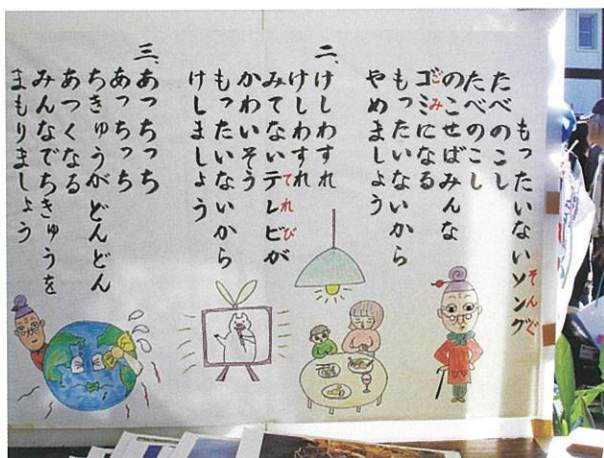 もったいないソング
そんぐ
たべのこし
たべのこし
のこせばみんな
ゴミになる
ごみ
もったいないから
やめましょう
二、けしわすれ
けしわすれ
みてないテレビが
てれび
かわいそう
もったいないから
けしましょう
三、あっちっち
あっちっち
ちきゅうがどんどん
あつくなる
みんなでちきゅうを
まもりましょう